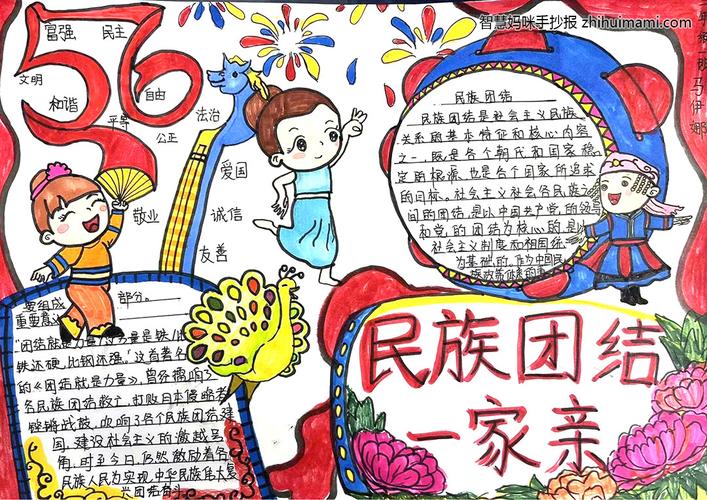 智慧妈咪手抄报 zhihuimami.com
56
富强
民主
文明
和谐
自由
平等
公正
法治
爱国
敬业
诚信
友善
民族团结
民族团结是社会主义民族
关系的基本特征和核心内容
之一，既是各个朝代和国家稳
定的根源，也是各个国家所追求
的目标。社会主义社会各民族之
间的团结，是以中国共产党的领导
和党的团结为核心的，是以
社会主义制度和祖国统
为基础的，作为中国民
要组成
部分。
重要意义
"团结就是力量，这力量是铁，
铁还硬，比钢还强。"这首著名
的《团结就是力量》，曾经鼓舞了
各民族团结救亡，打败日本侵略者
铿锵战鼓，吹响了各个民族团结建
国，建设社会主义的激越号
角，时至今日，仍然激励着各
民族人民为实现中华民族伟大复
兴团结奋斗
民族团结
一家亲
马伊娜